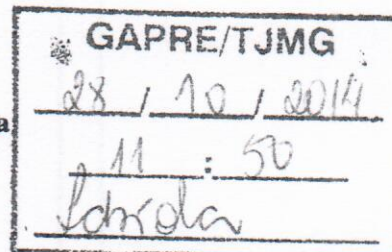 GAPRE/TJMG
28 / 10 / 2014
a
11 : 50